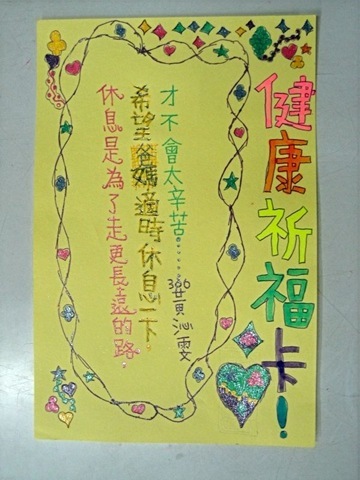 健康祈福卡!
休息是為了走更長遠的路.
希望爸媽適時休息一下.
才不會太辛苦......
沁雯